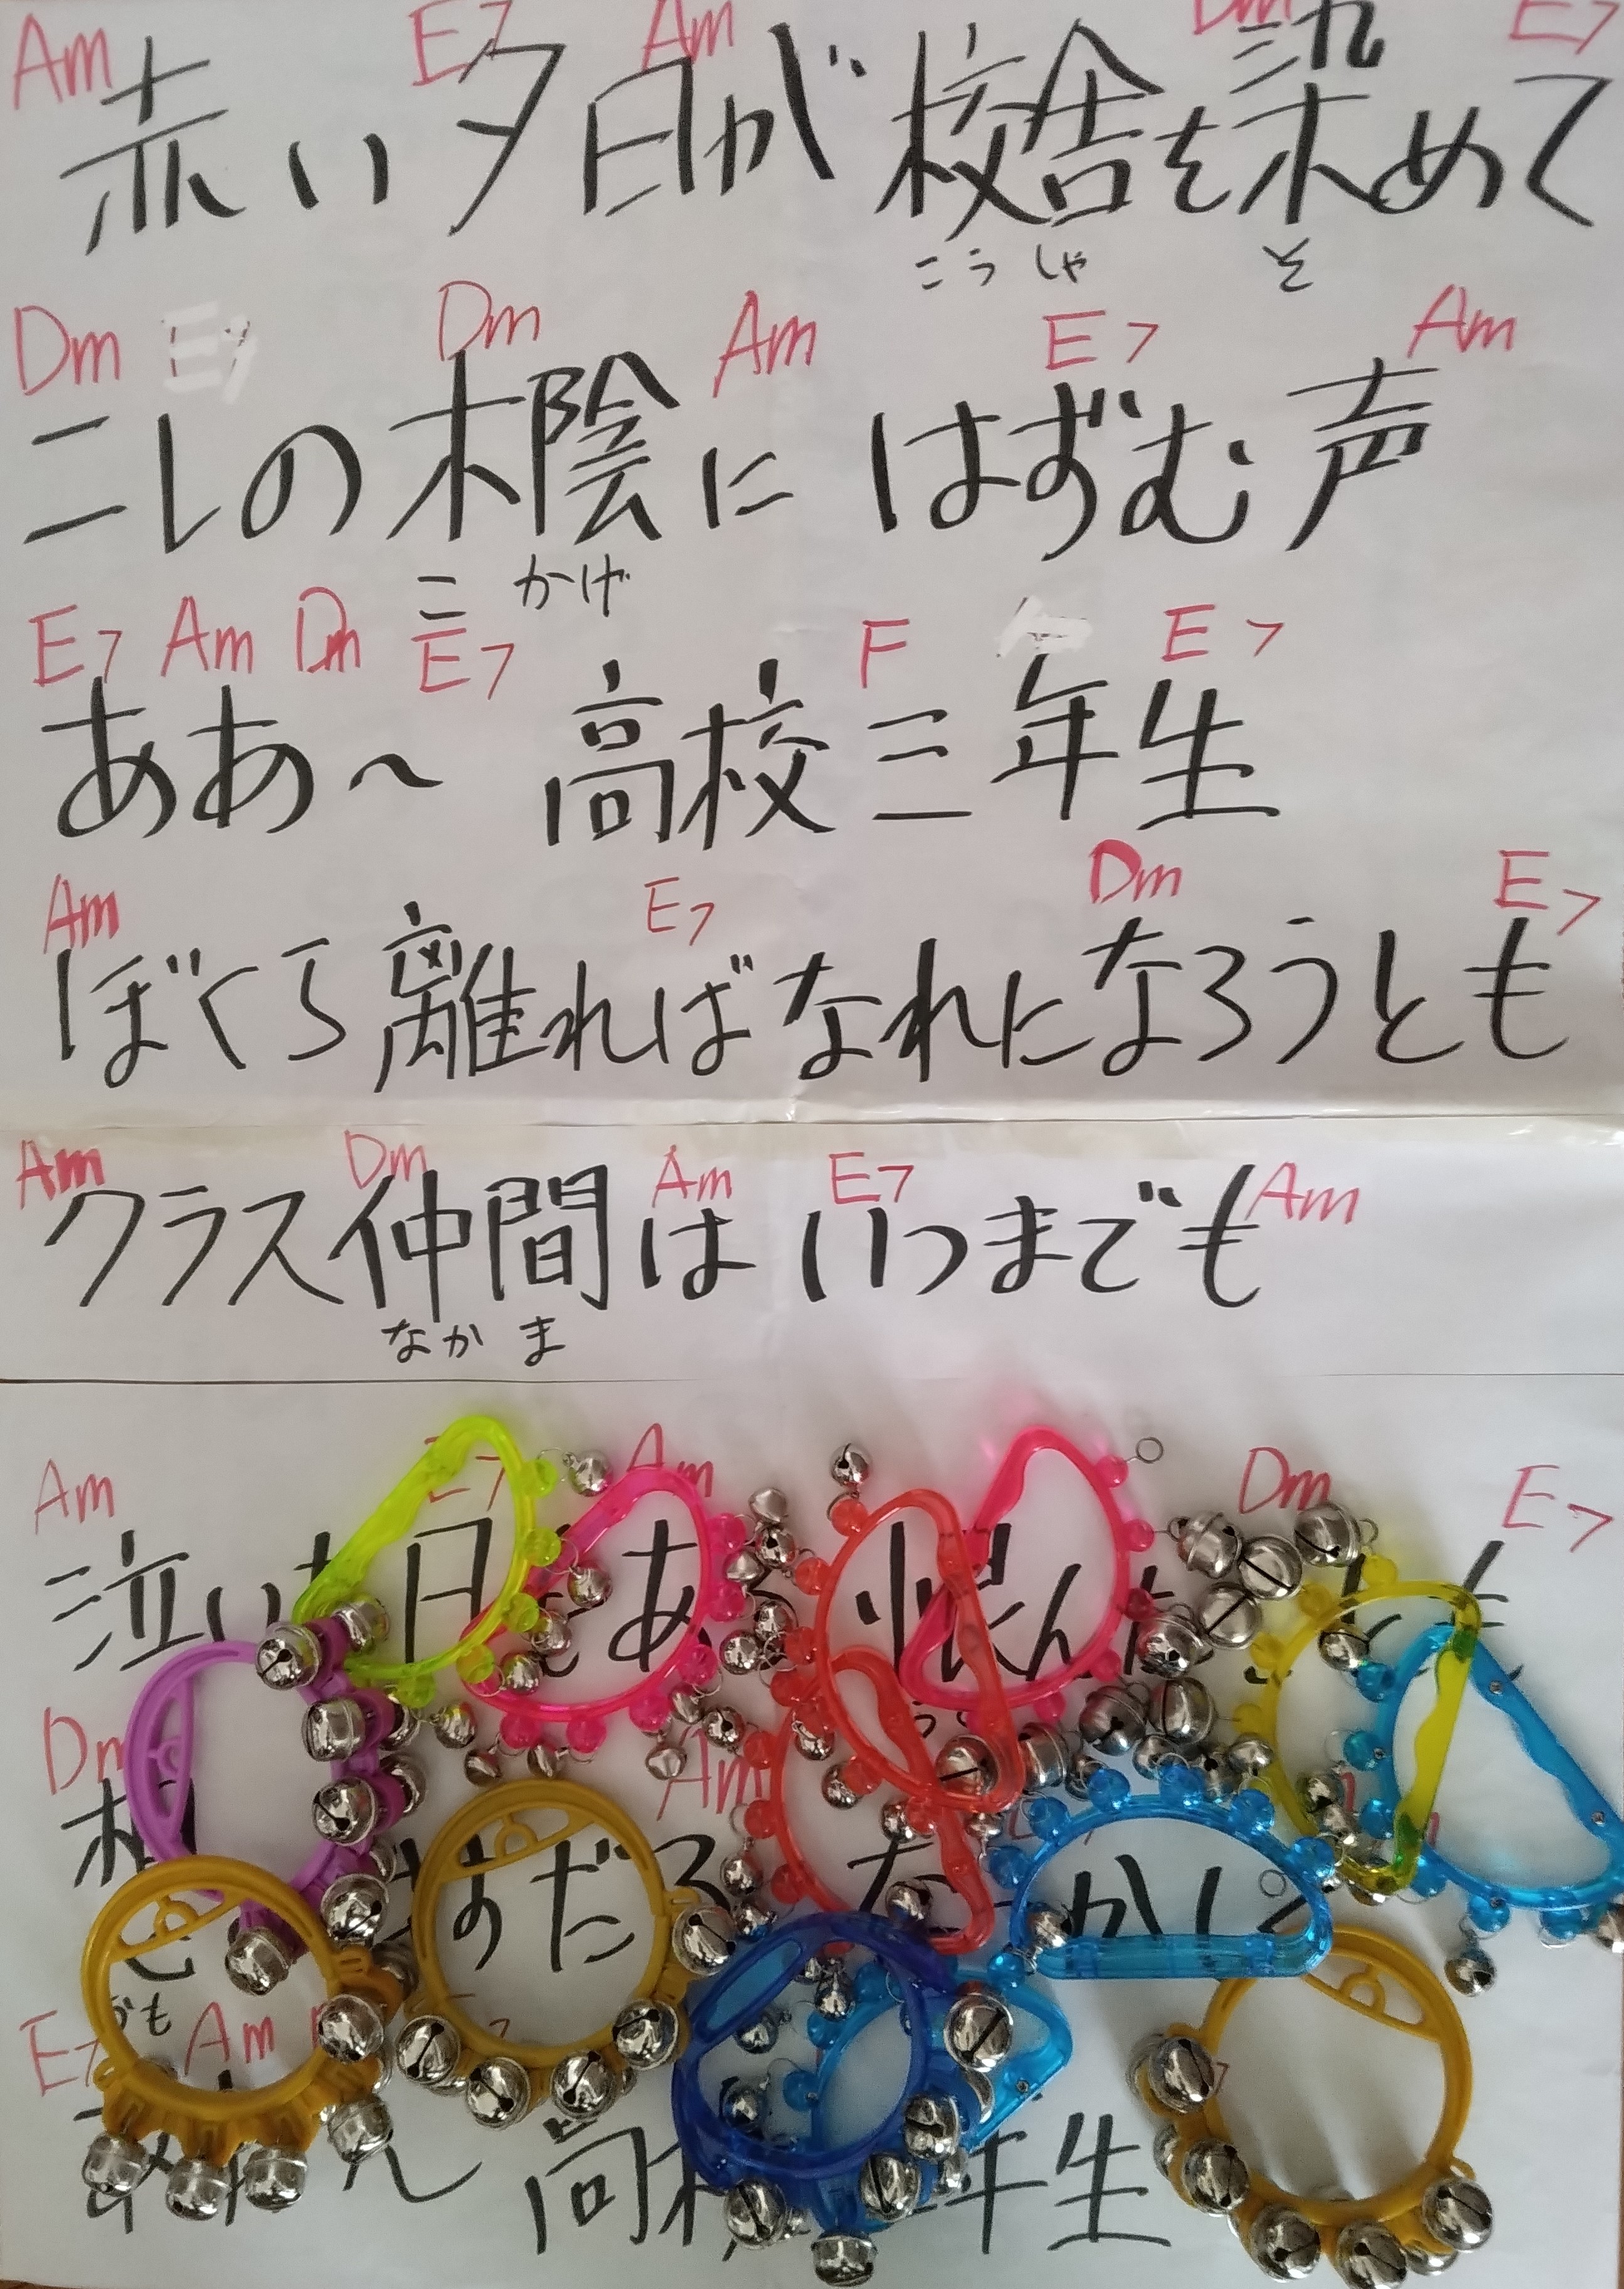 Am E7 Am Dm E7
赤い夕日が 校舎を染めて
こうしゃ そ
Dm E7 Dm Am E7 Am
ニレの木陰に はずむ声
こ かげ
E7 Am Dm E7 F E7
ああ〜 高校三年生
Am E7 Dm E7
ぼくら離ればなれになろうとも
Am Dm Am E7 Am
クラス仲間は いつまでも
なか ま
Am Am Dm E7
泣い 日 あ 恨ん
Dm Am
だろ なつかし
E7 Am
高校 年生